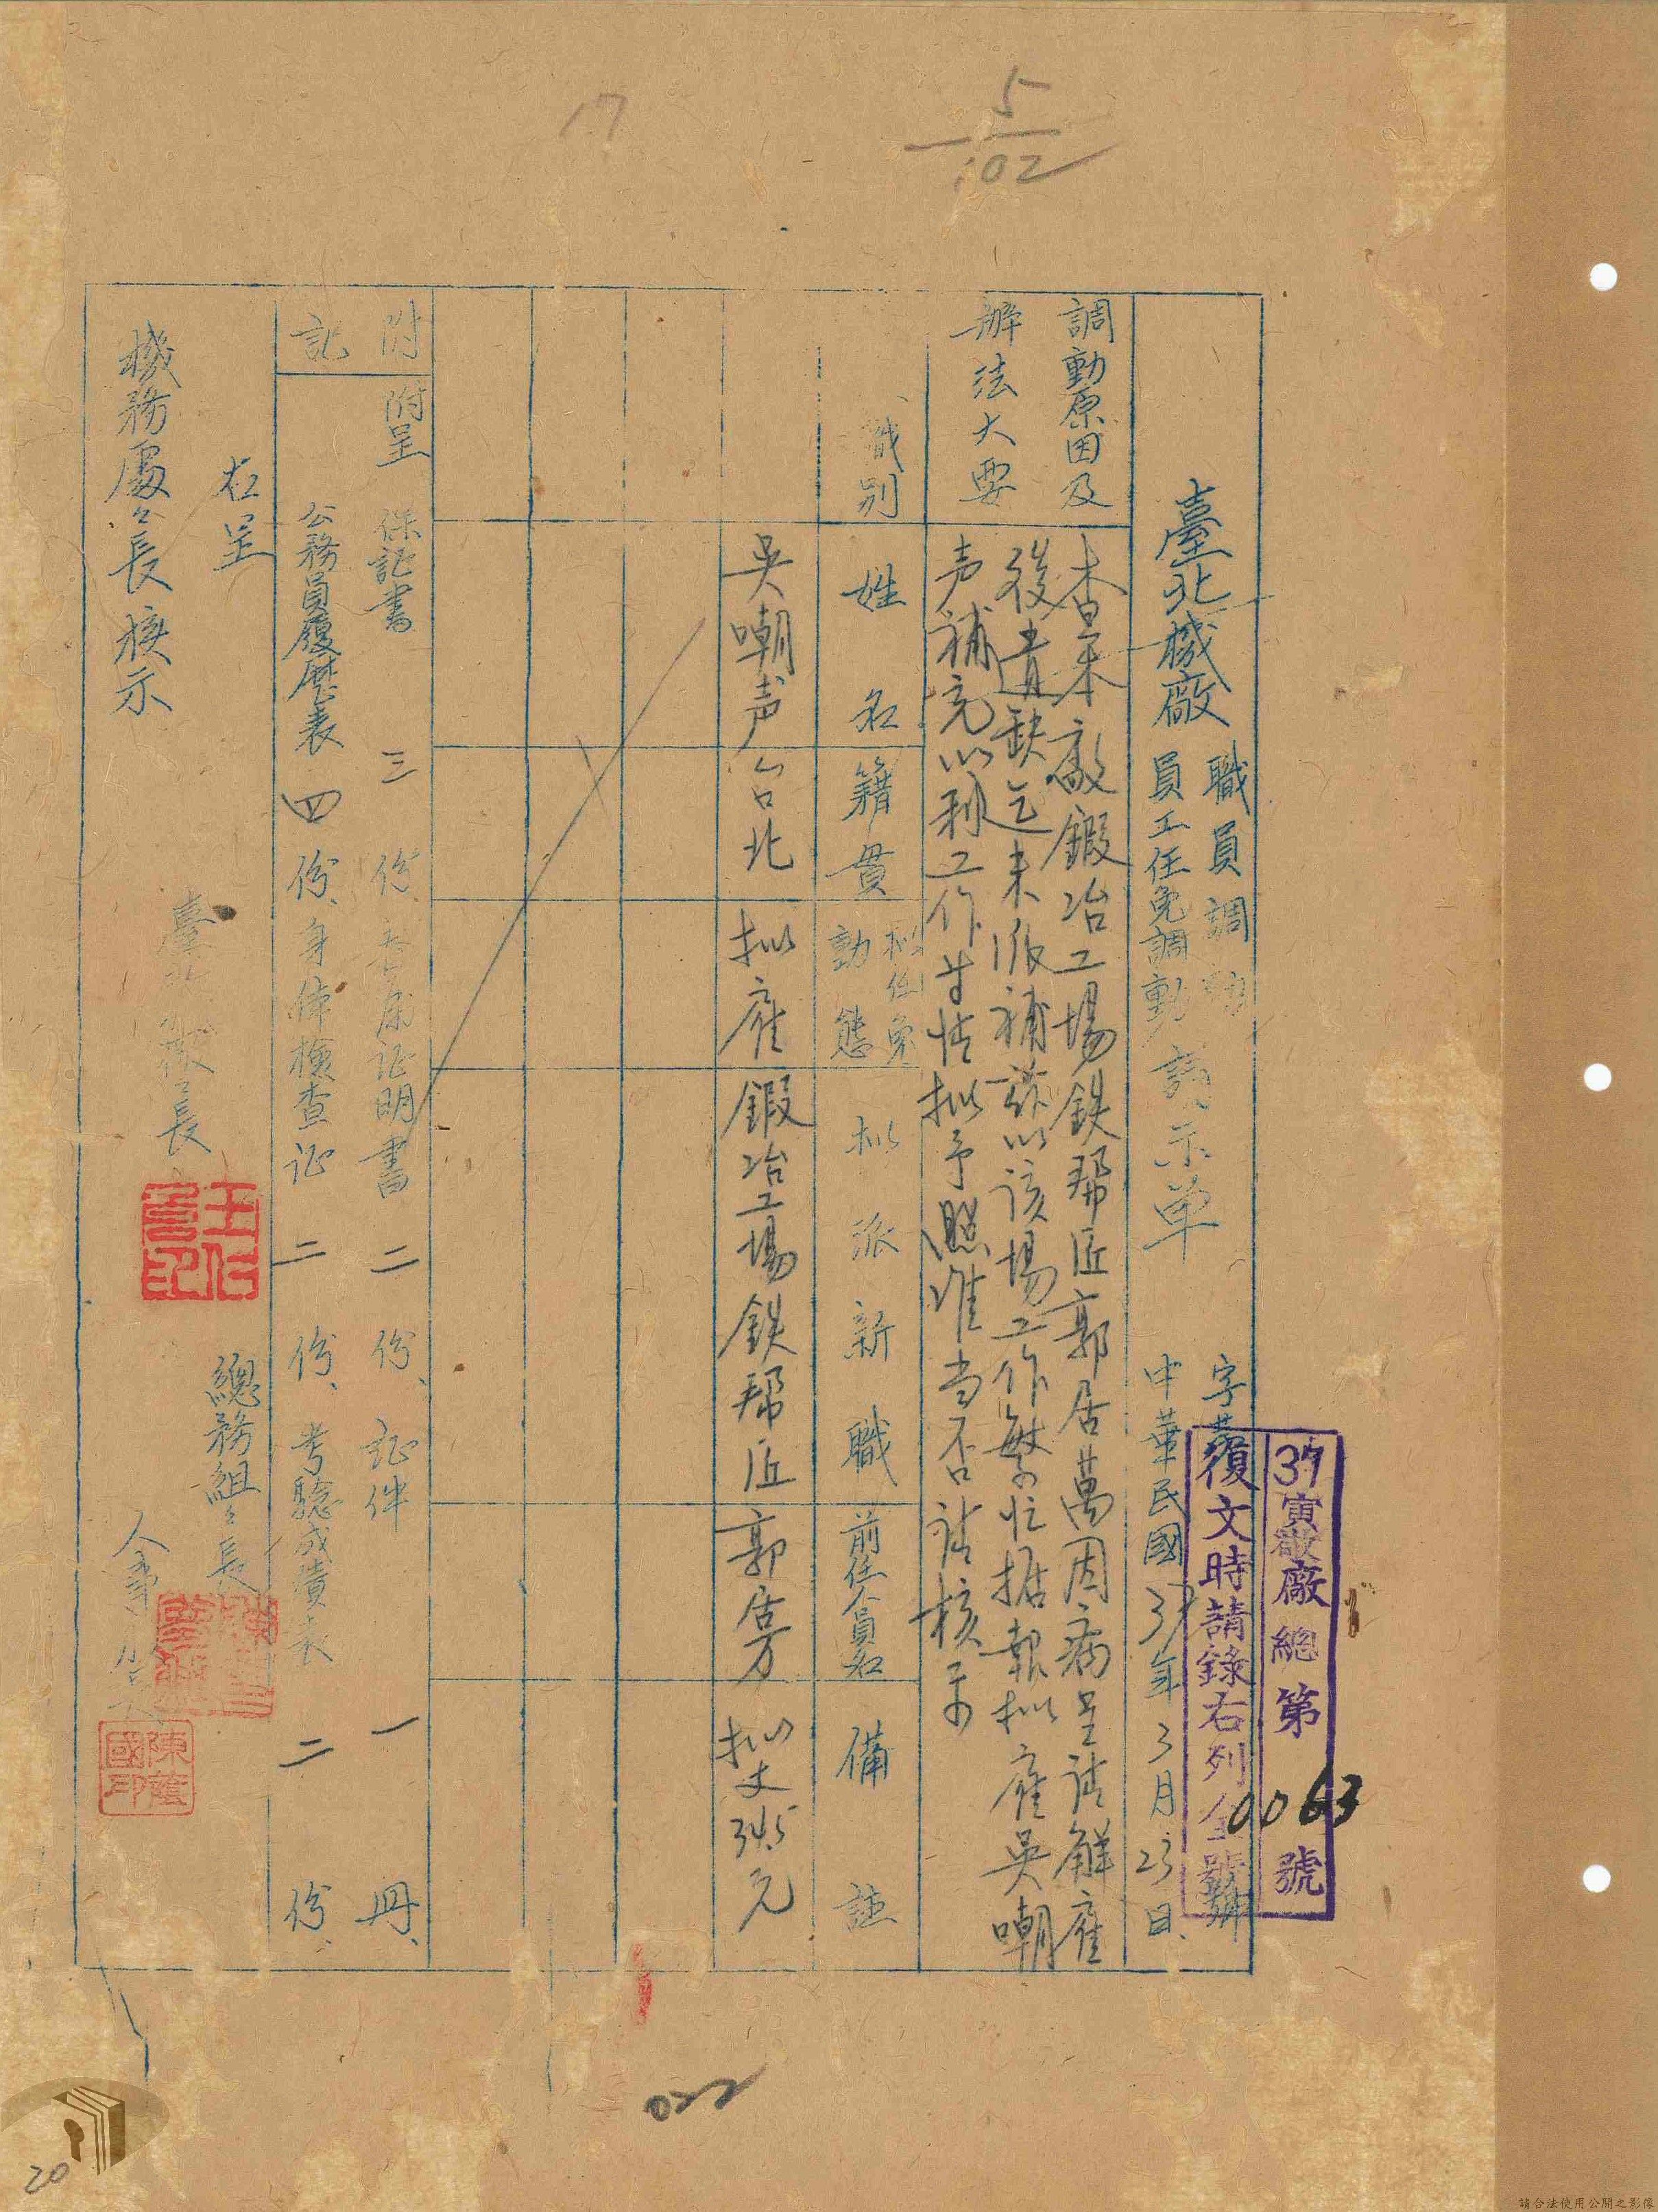 17
5
102
37寅敬廠總第0063號
復文時請錄右列全號
字第
號
中華民國37年3月23日
臺北機廠
職員調動
員工任免調動
請示单
調動原因及
辦法大要
查本廠鍛冶工場鉄帮匠郭居萬因病呈請解雇
後遺缺迄未派補茲以該場工作繁忙据報拟雇吳嘲
声補充以利工作等情拟予照准当否請核示
職別
姓名
籍貫
拟任免
動態
拟派新職
前任人員名
備註
吳嘲声
台北
拟雇
鍛冶工場鉄帮匠
郭居万
拟支345元
附記
附呈
保証書三份、
証明書二份、証件一冊、
公務員履歷表四份、身体檢查证二份、考驗成績表二份、
右呈
機務處處長核示
臺北機廠廠長
總務組組長
人事
陳蔭國印
022
20
請合法使用公開之影像